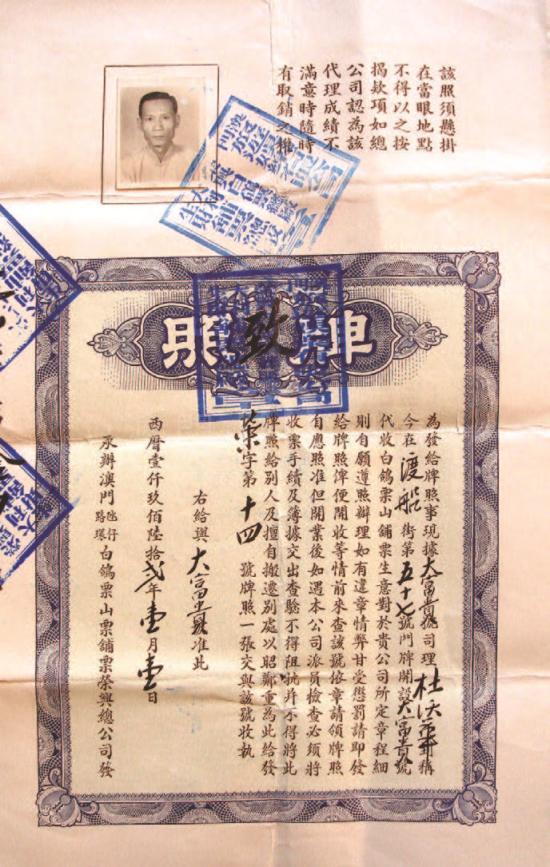 該照須懸掛
在當眼地點
不得以之按
揭欵項如總
公司認為該
代理成績不
滿意時隨時
有取銷之權
牌照
致
為發給牌照事現據大富貴號司理杜 稱
今在渡船街第五十七號門牌開設大富貴號
代收白鴿票山舖票生意對於貴公司所定章程細
則自願遵照辦理如有違章情弊甘受懲罰請即發
給牌照俾便開收等情前來查該號依章請領牌照
自應照准但開業後如遇本公司派員檢查必須將
收票手續及簿據交出查驗不得阻抗并不得將此
牌照給別人及擅自搬遷別處以昭鄭重為此給發
榮字第十四號牌照一張交與該號收執
右給與大富貴號准此
西曆壹仟玖佰陸拾弍年壹月壹日
承辦澳門氹仔路環白鴿票山票舖票榮興總公司發